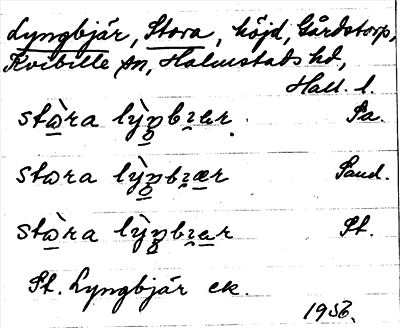 Lyngbjär, Stora, höjd, Gårdstorp,
Kvibille sn, Halmstads hd,
Hall. l.
stὼra lỳŋbɪær. Pa.
stωra lỳŋbɪær Sand.
stὼra lỳŋbɪar St.
St. Lyngbjär ek.